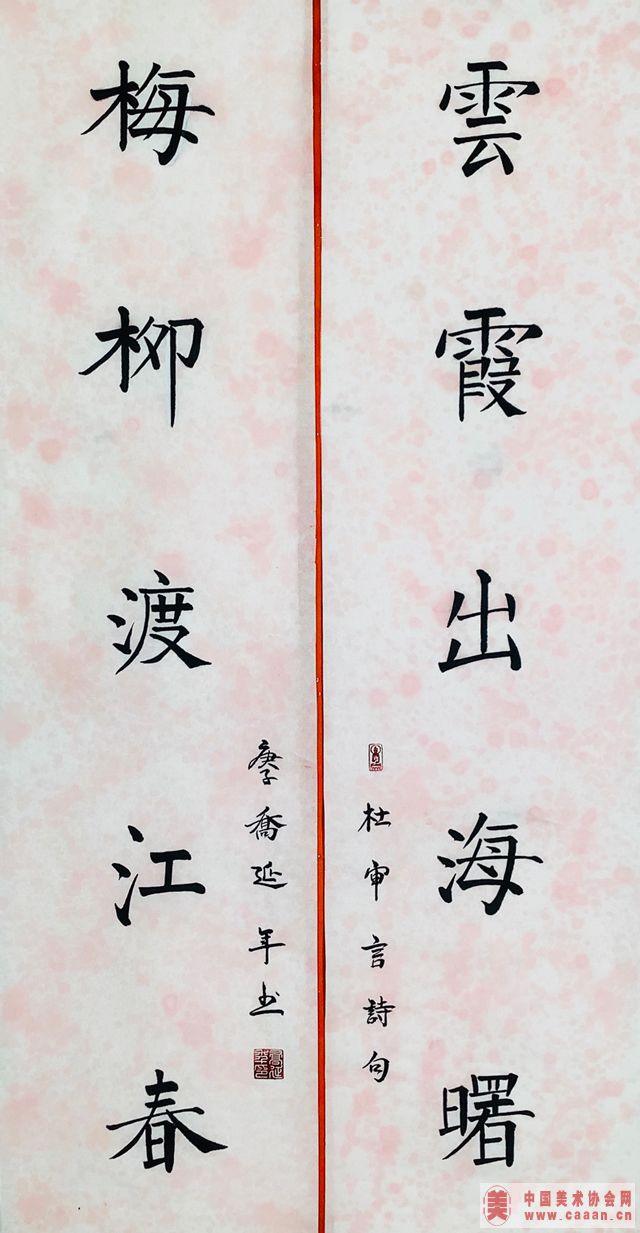 雲霞出海曙
杜审言詩句
梅柳渡江春
庚子喬延年书
美 中国美术协会网
www.caaan.cn